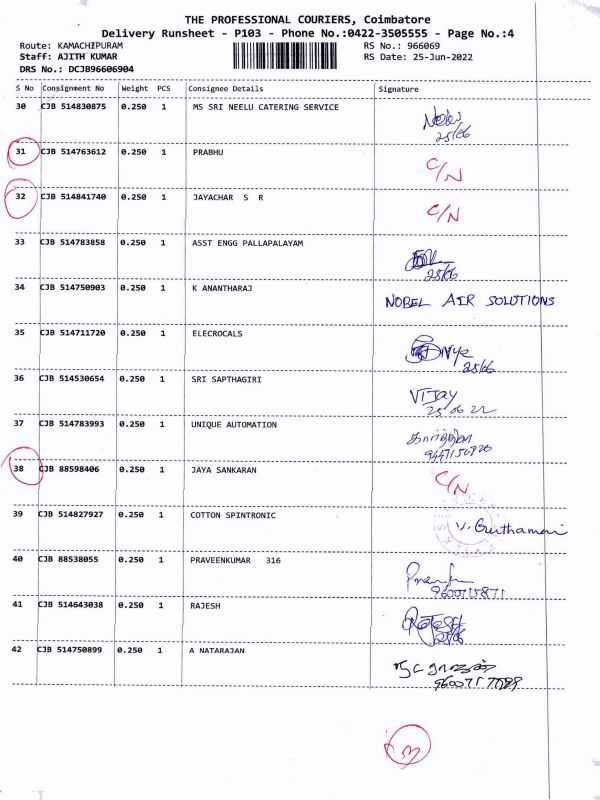 THE PROFESSIONAL COURIERS, Coimbatore
Delivery Runsheet - P103 - Phone No.:0422-3505555 - Page No.:4
Route: KAMACHIPURAM RS No.: 966069
Staff: AJITH KUMAR RS Date: 25-Jun-2022
DRS No.: DCJB96606904
S No Consignment No Weight PCS Consignee Details Signature
30 CJB 514830875 0.250 1 MS SRI NEELU CATERING SERVICE
25/06
31 CJB 514763612 0.250 1 PRABHU C/N
32 CJB 514841740 0.250 1 JAYACHAR S R C/N
33 CJB 514783858 0.250 1 ASST ENGG PALLAPALAYAM
25/06
34 CJB 514750903 0.250 1 K ANANTHARAJ NOBEL AIR SOLUTIONS
35 CJB 514711720 0.250 1 ELECROCALS
25/06
36 CJB 514530654 0.250 1 SRI SAPTHAGIRI VIJAY
25 06 22
37 CJB 514783993 0.250 1 UNIQUE AUTOMATION
38 CJB 88598406 0.250 1 JAYA SANKARAN C/N
39 CJB 514827927 0.250 1 COTTON SPINTRONIC
40 CJB 88538055 0.250 1 PRAVEENKUMAR 316
41 CJB 514643038 0.250 1 RAJESH
25/06
42 CJB 514750899 0.250 1 A NATARAJAN